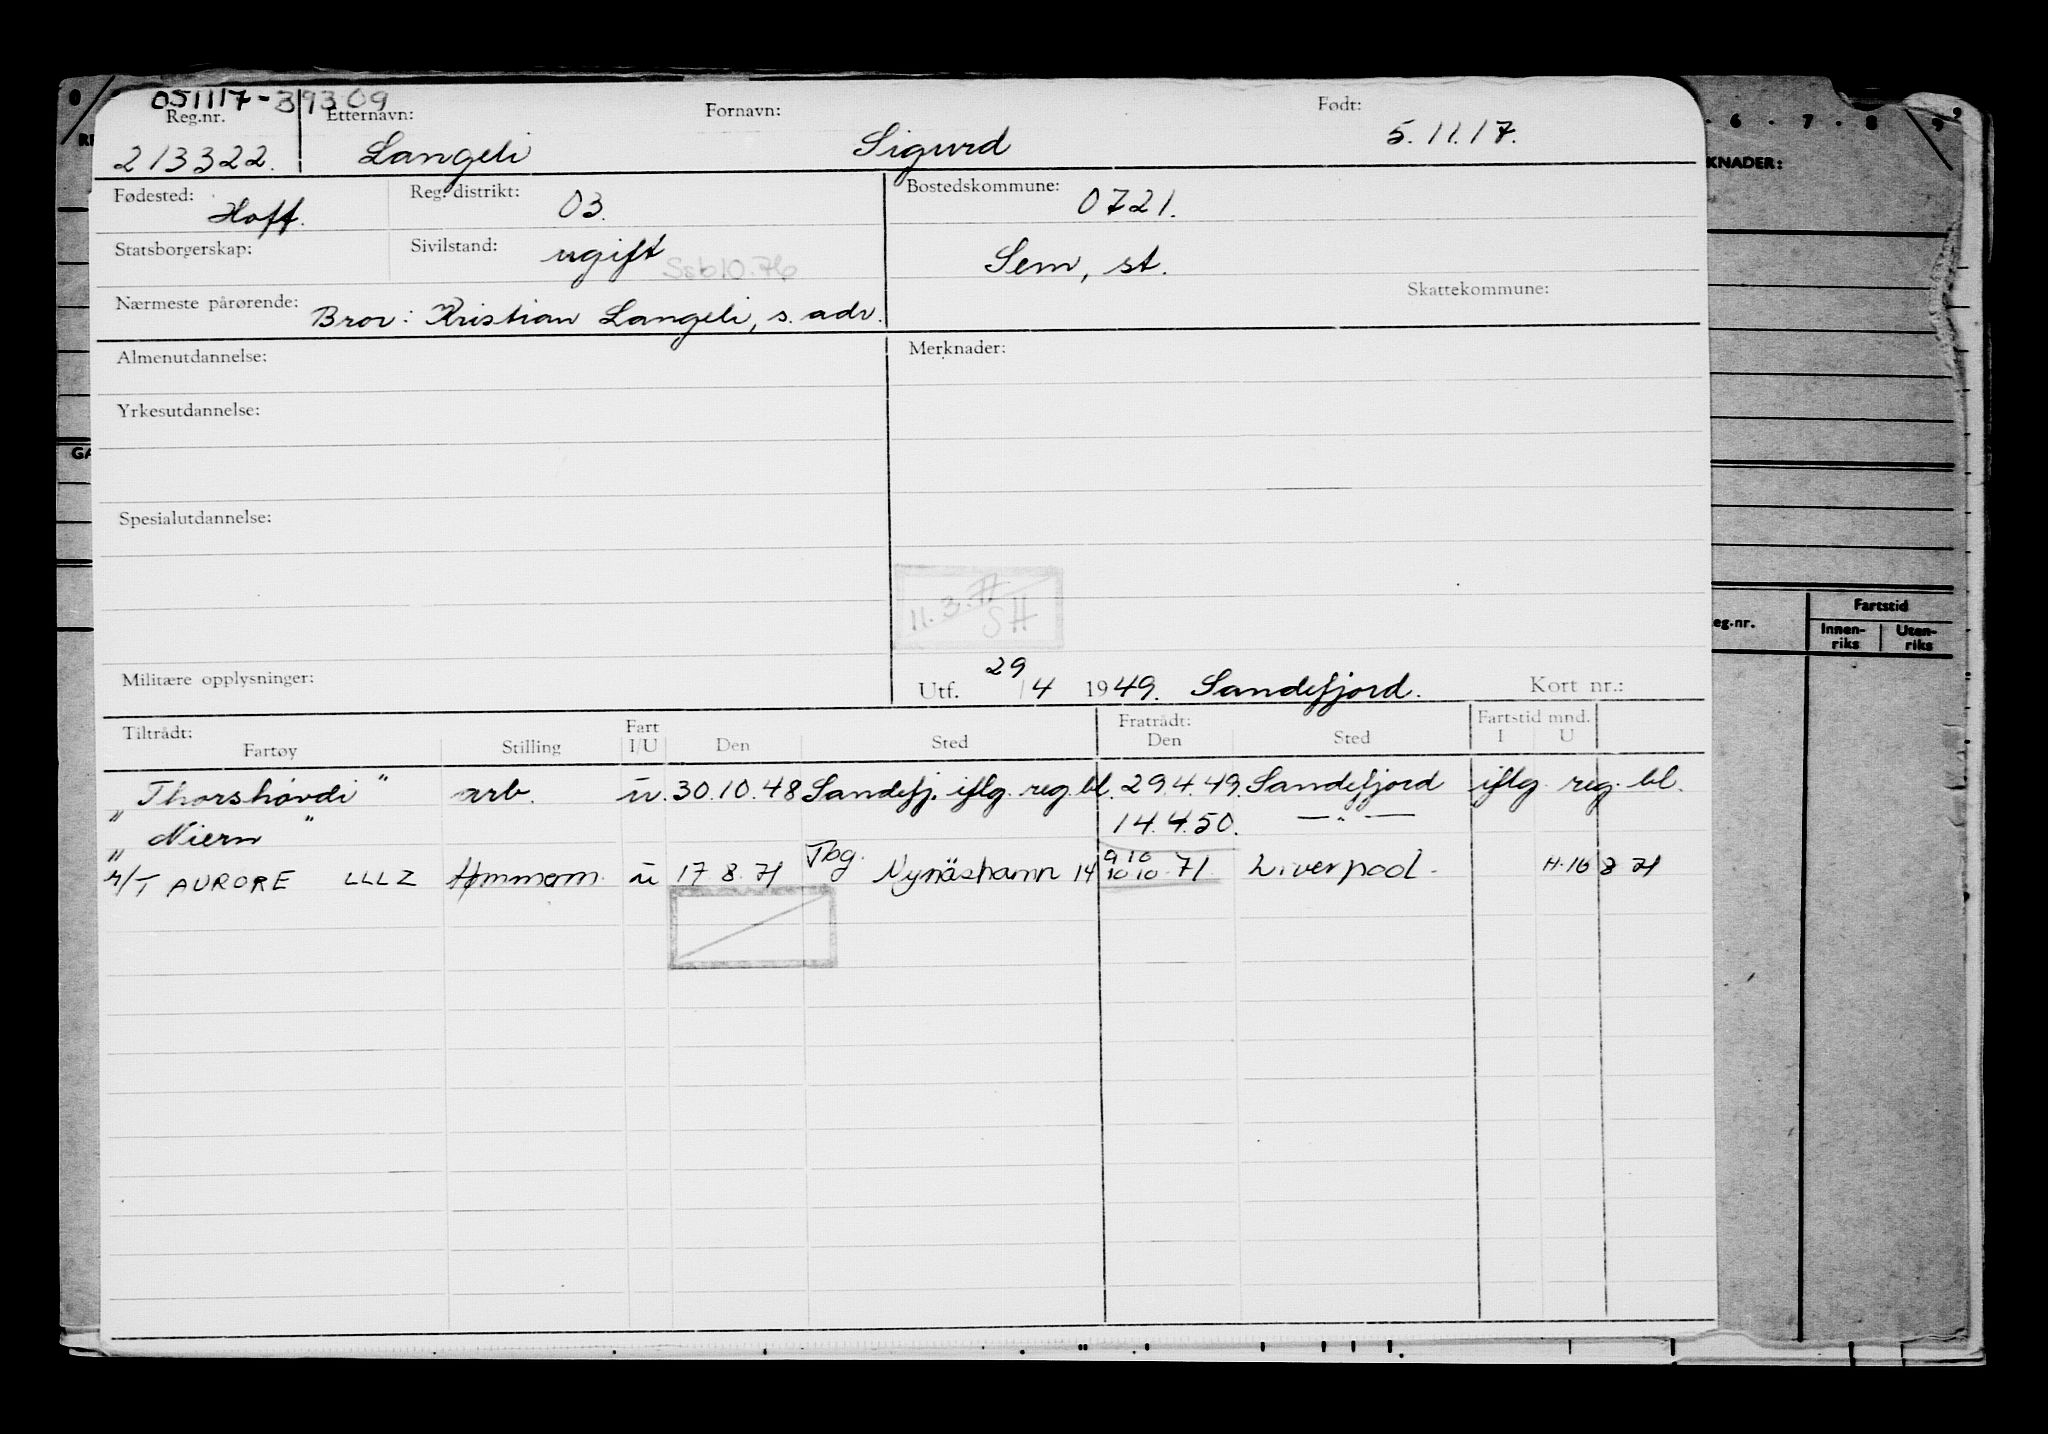 051117-39309
Reg.nr. Etternavn: Fornavn: Født:
213322. Langeli Sigurd 5.11.17.
Fødested: Hoff. Reg. distrikt: 03. Bostedskommune: 0721.
Statsborgerskap: Sivilstand: ugift Ssb10.76 Sem, st.
Skattekommune:
Nærmeste pårørende: Bror: Kristian Langeli, s. adr.
Almenutdannelse: Merknader:
Yrkesutdannelse:
Spesialutdannelse:
11.3.71
SH
Militære opplysninger: Utf. 29/4 1949. Sandefjord. Kort nr.:
Tiltrådt: Fart Fratrådt: Fartstid mnd.
Fartøy Stilling I/U Den Sted Den Sted I U
"Thorshøvdi" arb. u. 30.10.48 Sandefj. iflg. reg. bl. 29.4.49. Sandefjord iflg. reg. bl.
"Niern" 14.4.50. — " —
M/T AURORE LLLZ u 17 8. 71 Tbg. Nynäshamn 14 9 10 10 10 71. Liverpool. H. 16 8 71
6 . 7 . 8 9
KNADER:
eg.nr. Fartstid
Innen- Uten-
riks riks
GA